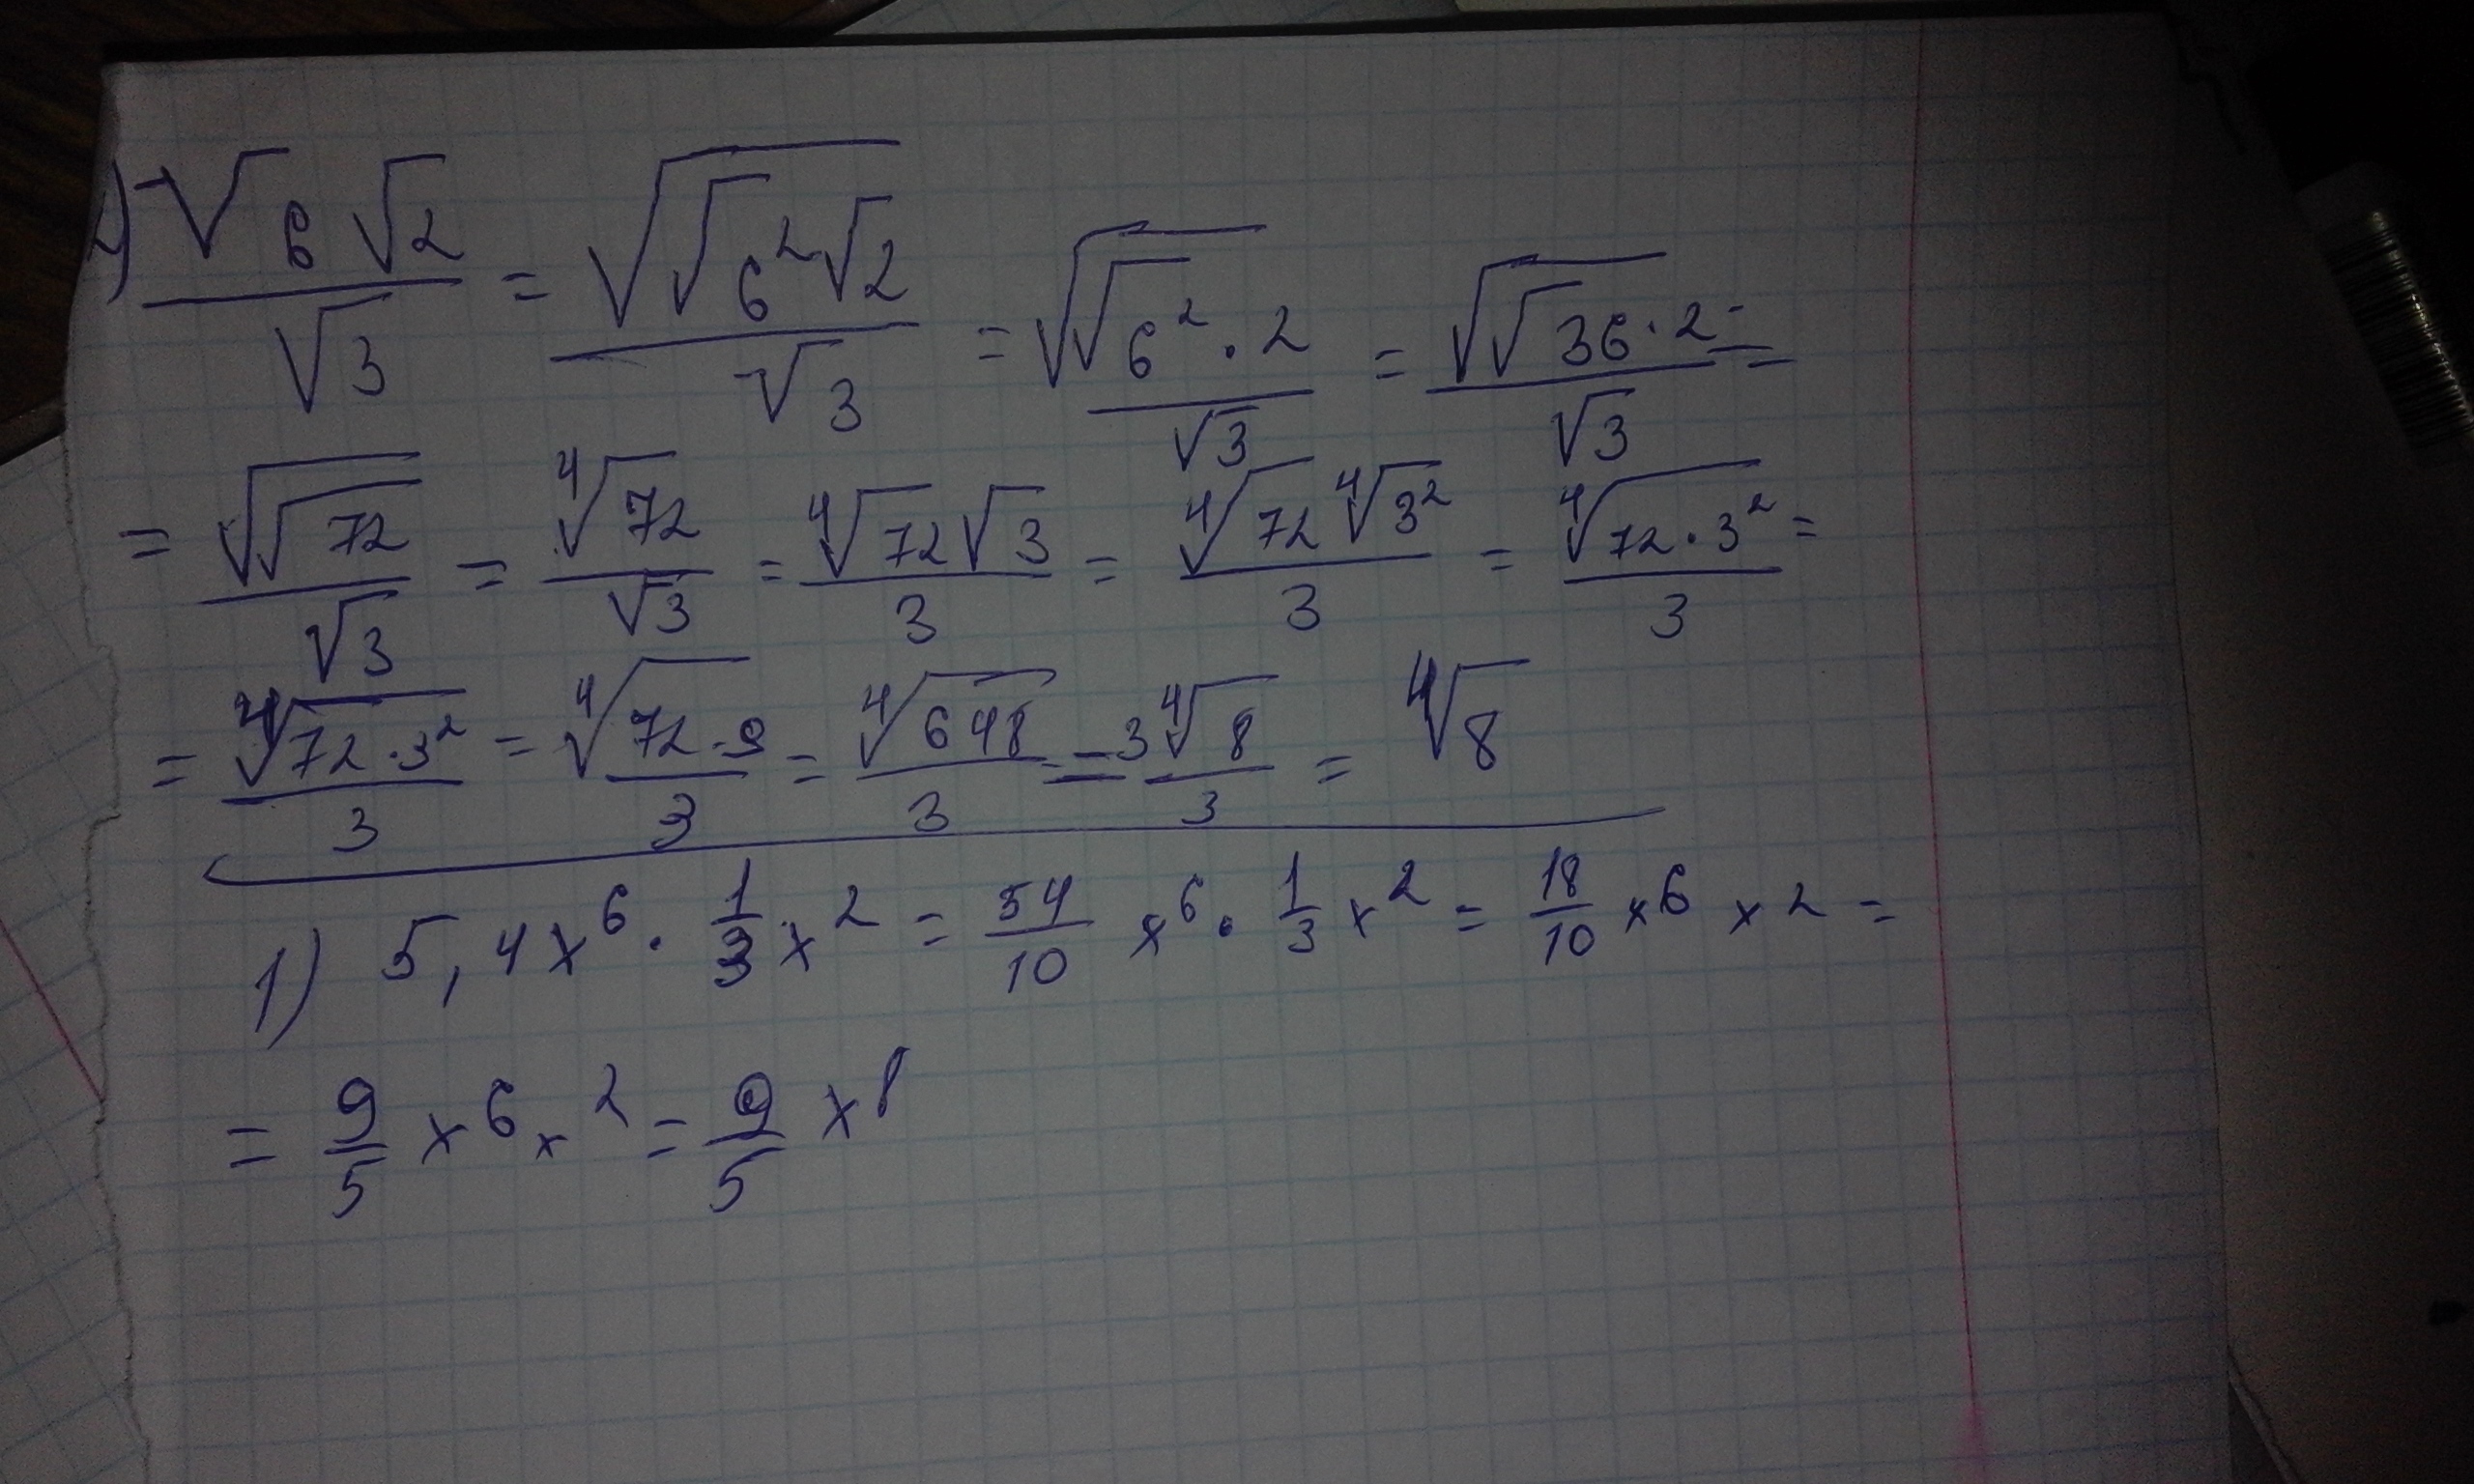 2) √6√2/√3 = √√6²√2/√3 = √√6²·2/√3 = √√36·2/√3 =
= √√72/√3 = ⁴√72/√3 = ⁴√72√3/3 = ⁴√72 ⁴√3²/3 = ⁴√72·3²/3 =
= ⁴√72·3²/3 = ⁴√72·9/3 = ⁴√648/3 = 3⁴√8/3 = ⁴√8
1) 5,4x⁶ · 1/3 x² = 54/10 x⁶ · 1/3 x² = 18/10 x⁶ x² =
= 9/5 x⁶ x² = 9/5 x⁸